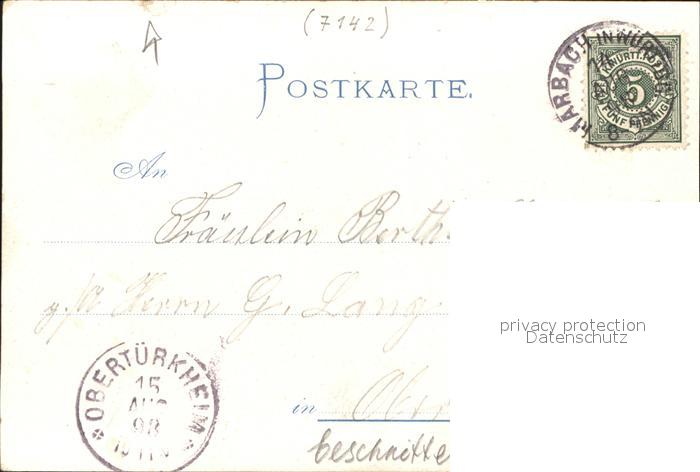 (7142)
MARBACH IN WÜRTTBG
K. WÜRTT. POST
5
FÜNF PFENNIG
8
POSTKARTE.
An
Fräulein Berth
Herrn G. Lang
privacy protection
Datenschutz
OBERTÜRKHEIM
15
AUG
98
in Ober
beschnitte